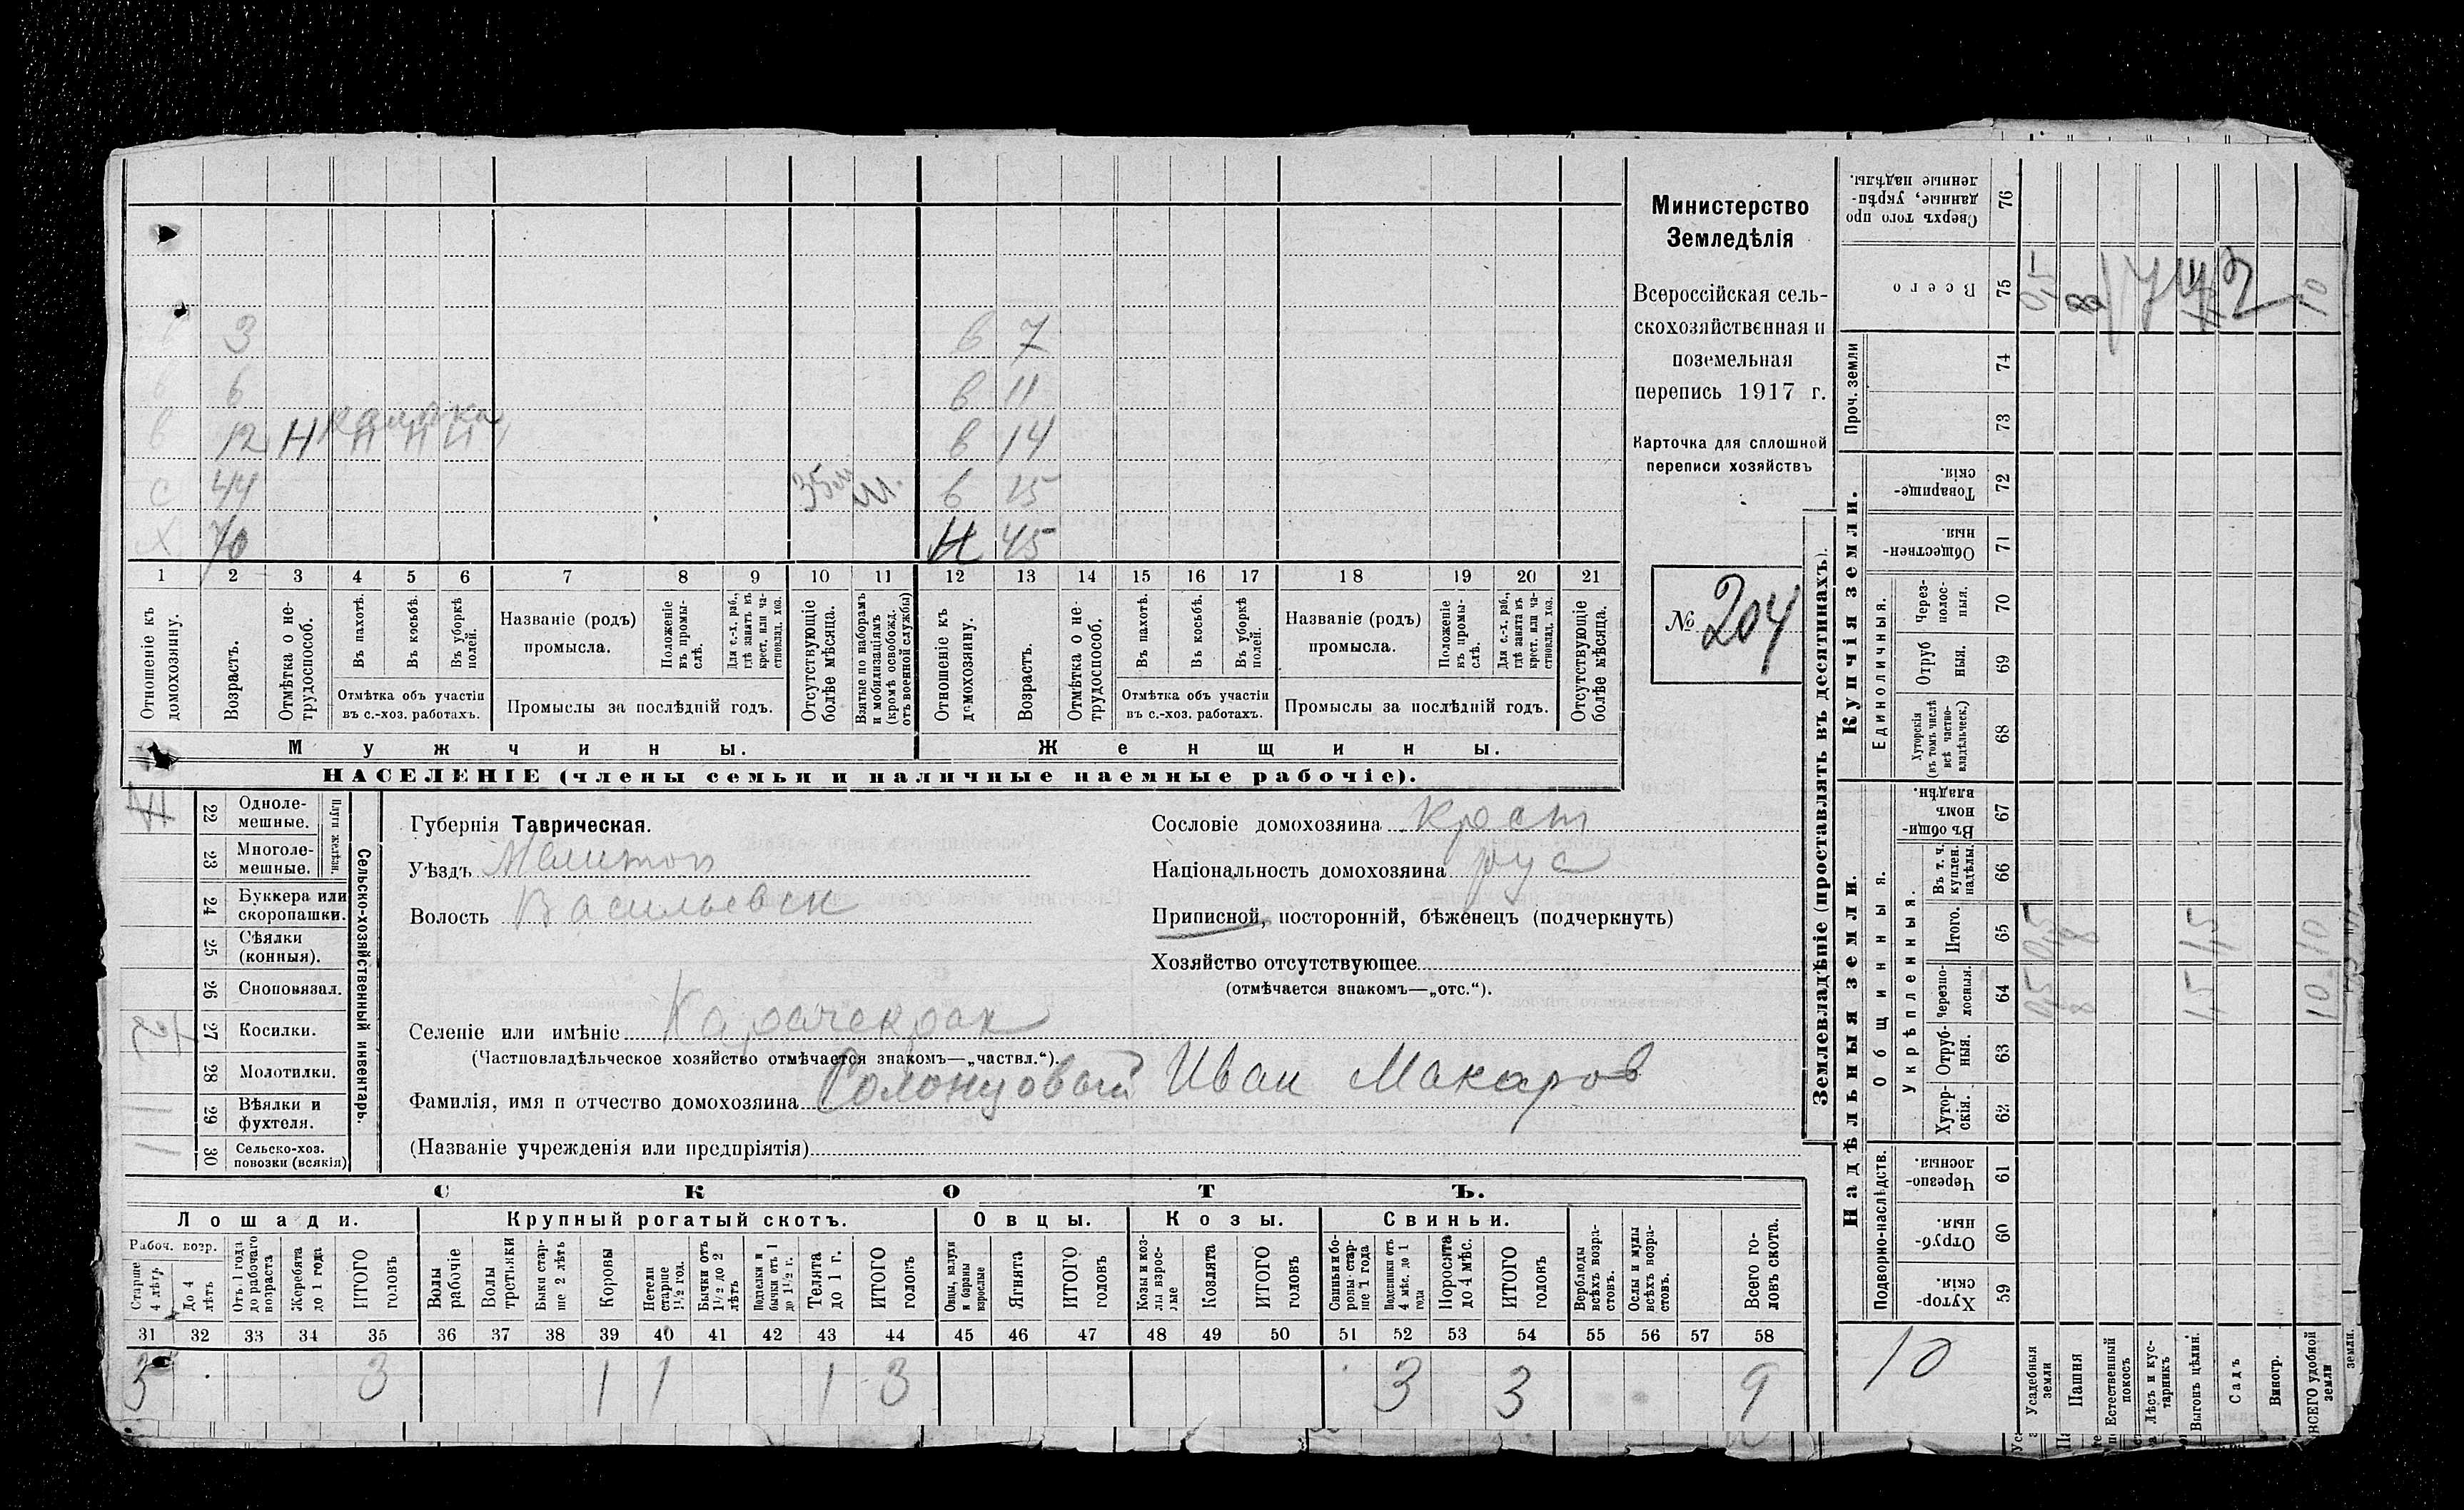 Министерство
Земледѣлія
Всероссійская сель-
скохозяйственная и
поземельная
перепись 1917 г.
Карточка для сплошной
переписи хозяйствъ
№ 204
3
в 7
6
в 11
в 12 Н
в 14
С 44
в 15
Х 70
45
1 2 3 4 5 6 7 8 9 10 11 12 13 14 15 16 17 18 19 20 21
Отношеніе къ домохозяину.
Возрастъ.
Отмѣтка о не-трудоспособ.
Въ пахотѣ.
Въ косьбѣ.
Въ уборкѣ полей.
Отмѣтка объ участіи въ с.-хоз. работахъ.
Названіе (родъ) промысла.
Положеніе въ промы-слѣ.
Для с.-х. раб., гдѣ занятъ въ крест. или ча-стновлад. хоз.
Промыслы за послѣдній годъ.
Отсутствующіе болѣе мѣсяца.
Взятые по наборамъ и мобилизаціямъ (кромѣ освобожд. отъ военной службы)
Отношеніе къ домохозяину.
Возрастъ.
Отмѣтка о не-трудоспособ.
Въ пахотѣ.
Въ косьбѣ.
Въ уборкѣ полей.
Отмѣтка объ участіи въ с.-хоз. работахъ.
Названіе (родъ) промысла.
Положеніе въ промы-слѣ.
Для с.-х. раб., гдѣ занята въ крест. или ча-стновлад. хоз.
Промыслы за послѣдній годъ.
Отсутствующіе болѣе мѣсяца.
Мужчины.
Женщины.
НАСЕЛЕНІЕ (члены семьи и наличные наемные рабочіе).
22 Одноле-мешные.
23 Многоле-мешные.
Плуги желѣзн.
24 Буккера или скоропашки.
25 Сѣялки (конныя).
26 Сноповязал.
27 Косилки.
28 Молотилки.
29 Вѣялки и фухтеля.
30 Сельско-хоз. повозки (всякія)
Сельско-хозяйственный инвентарь.
Губернія Таврическая.
Уѣздъ Мелитоп
Волость Васильевск
Сословіе домохозяина крест
Національность домохозяина рус
Приписной, посторонній, бѣженецъ (подчеркнуть)
Хозяйство отсутствующее
(отмѣчается знакомъ—„отс.“).
Селеніе или имѣніе Карачекрак
(Частновладѣльческое хозяйство отмѣчается знакомъ—„частвл.“).
Фамилія, имя и отчество домохозяина Солонцовый Иван Макаров
(Названіе учрежденія или предпріятія)
СКОТЪ.
Лошади.
Крупный рогатый скотъ.
Овцы.
Козы.
Свиньи.
Рабоч. возр.
Старше 4 лѣтъ
До 4 лѣтъ
Отъ 1 года до рабочаго возраста
Жеребята до 1 года
ИТОГО головъ
Волы рабочіе
Волы третьяки
Быки стар-ше 2 лѣтъ
Коровы
Нетели старше 1½ год.
Бычки отъ 1½ до 2 лѣтъ
Подтелки и бычки отъ 1 до 1½ г.
Телята до 1 г.
ИТОГО головъ
Овцы, валухи и бараны взрослые
Ягнята
ИТОГО головъ
Козы и коз-лы взрос-лые
Козлята
ИТОГО головъ
Свиньи и бо-ровы стар-ше 1 года
Подсвинки отъ 4 мѣс. до 1 года
Поросята до 4 мѣс.
ИТОГО головъ
Верблюды всѣхъ возра-стовъ.
Ослы и мулы всѣхъ возра-стовъ.
Всего го-ловъ скота.
31 32 33 34 35 36 37 38 39 40 41 42 43 44 45 46 47 48 49 50 51 52 53 54 55 56 57 58
3 3 1 1 1 3 3 3 9
Землевладѣніе (проставлять въ десятинахъ).
Купчія земли.
Надѣльныя земли.
Сверхъ того про-данные, укрѣп-ленные надѣлы. 76
Всего 75
Проч. земли
74
73
Товарище-скія. 72
Обществен-ныя 71
Единоличныя.
Через-полос-ныя. 70
Отруб-ныя. 69
Хуторскія (въ томъ числѣ всѣ частно-владѣльческ.) 68
Общинныя.
Въ общин-номъ владѣн. 67
Укрѣпленныя.
Въ т. ч. куплен. надѣлы. 66
Итого. 65
Черезпо-лосныя. 64
Отруб-ныя. 63
Хутор-скія. 62
Подворно-наслѣдств.
Черезпо-лосныя 61
Отруб-ныя. 60
Хутор-скія. 59
Усадебныя земли
Пашня
Естественный покосъ
Лѣсъ и кус-тарникъ
Выгонъ цѣлин.
Садъ
Виногр.
ВСЕГО удобной земли
0,5 8 10
0,5 8 1,5 10
0,5 8 1,5 10
10